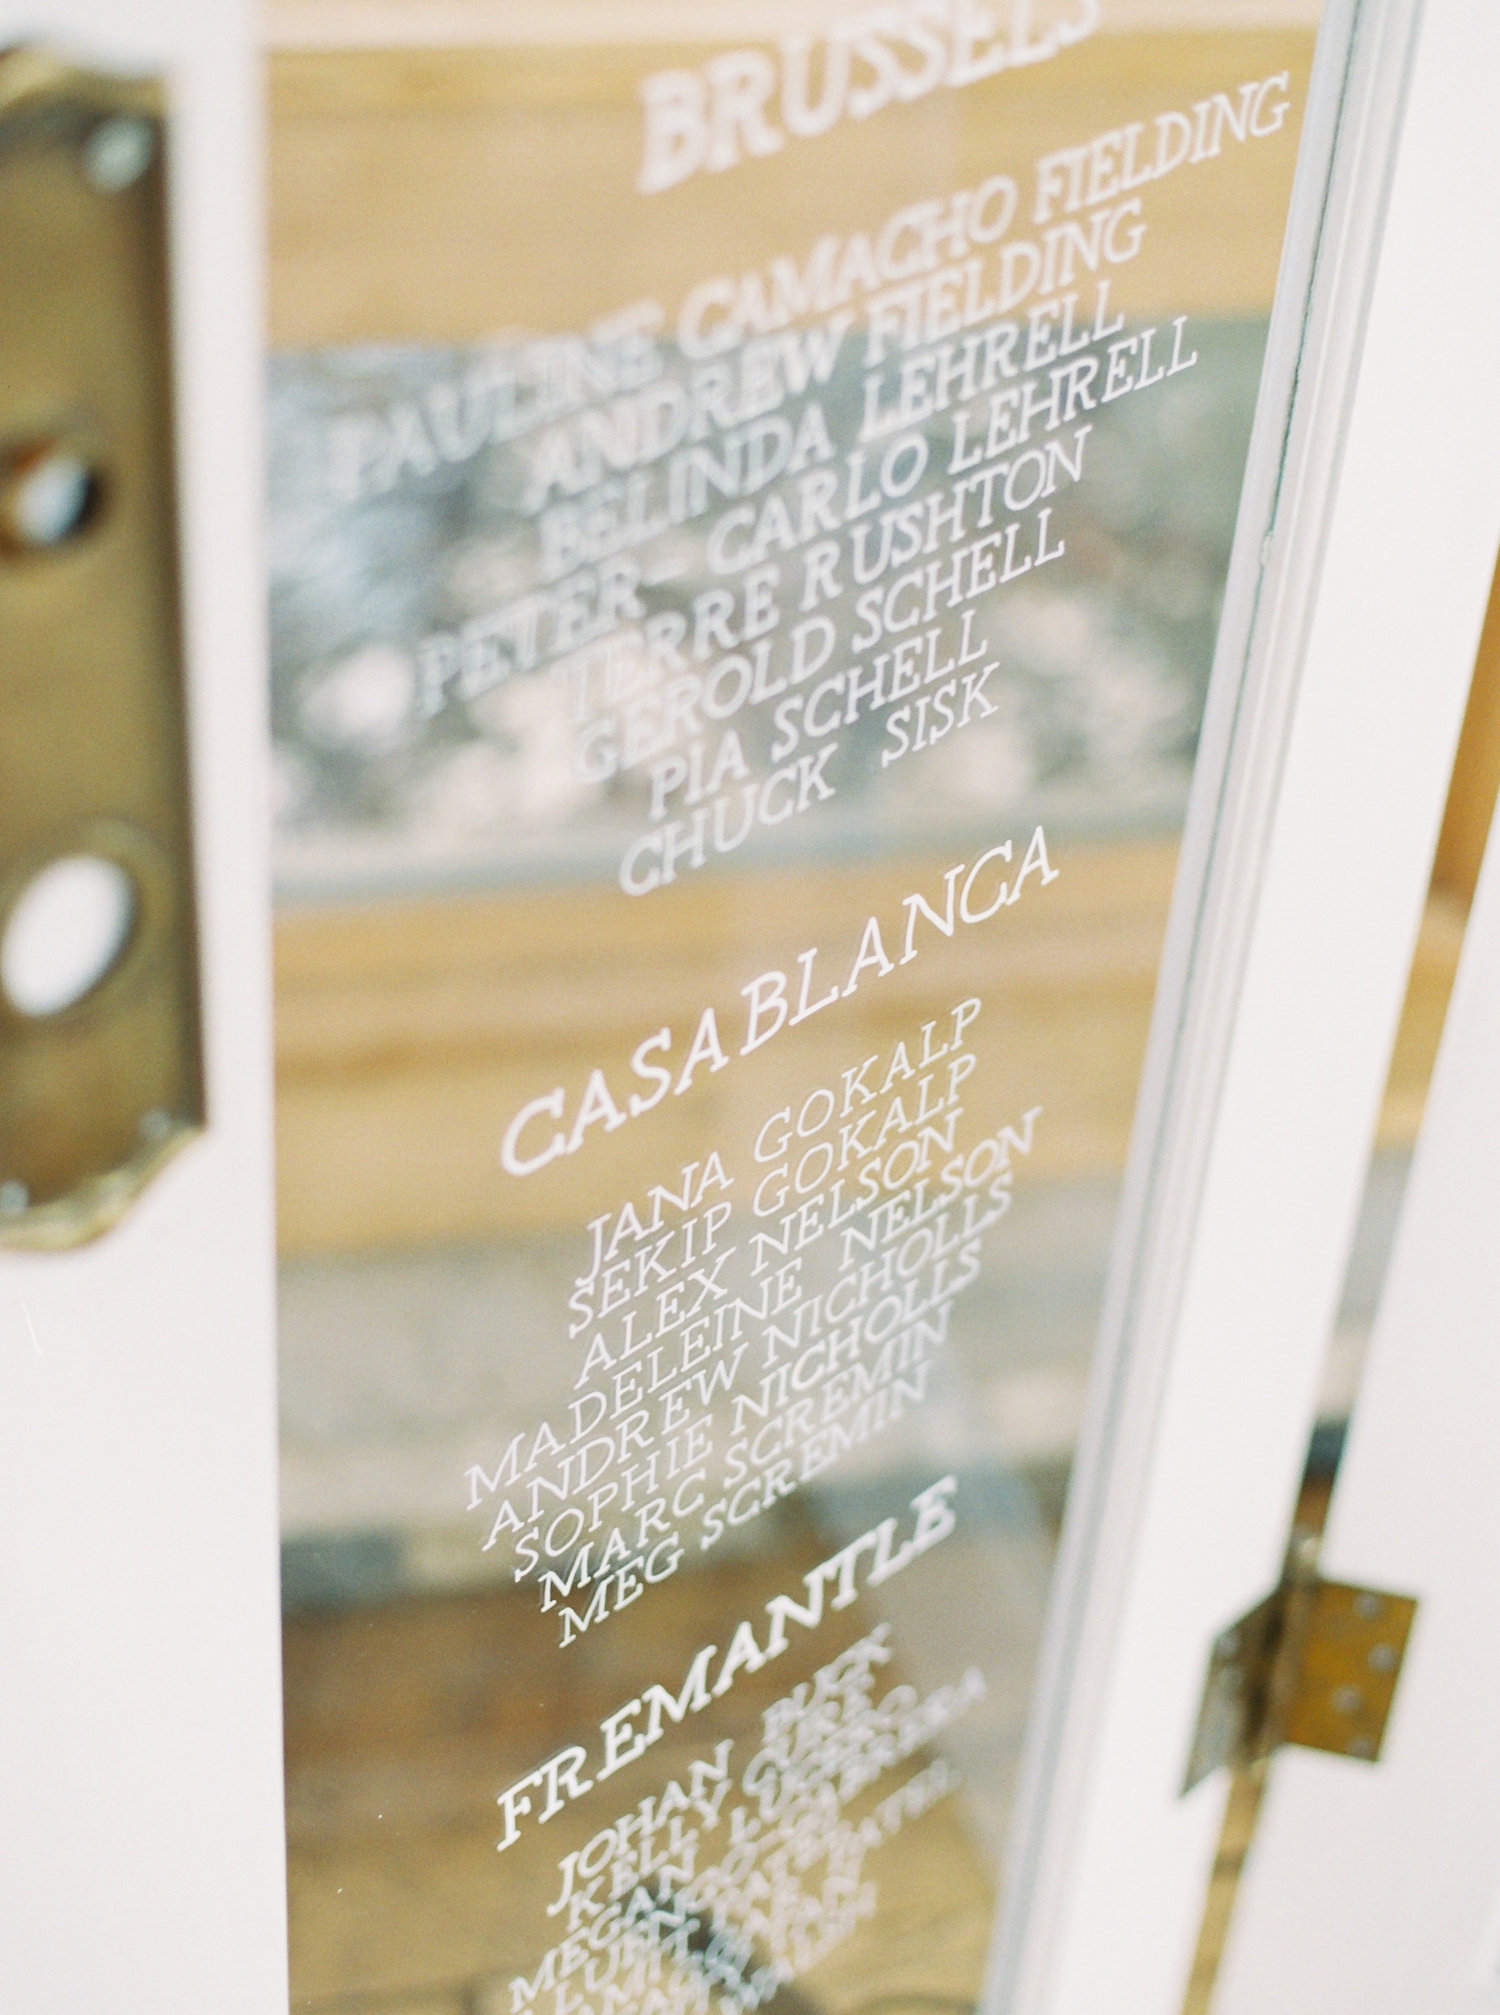 BRUSSELS
PAULINE CAMACHO FIELDING
ANDREW FIELDING
BELINDA LEHRELL
PETER-CARLO LEHRELL
TERRE RUSHTON
GEROLD SCHELL
PIA SCHELL
CHUCK SISK
CASABLANCA
JANA GOKALP
SEKIP GOKALP
ALEX NELSON
MADELEINE NELSON
ANDREW NICHOLLS
SOPHIE NICHOLLS
MARC SCREMIN
MEG SCREMIN
FREMANTLE
JOHAN BUCK
KELLY
MEGAN